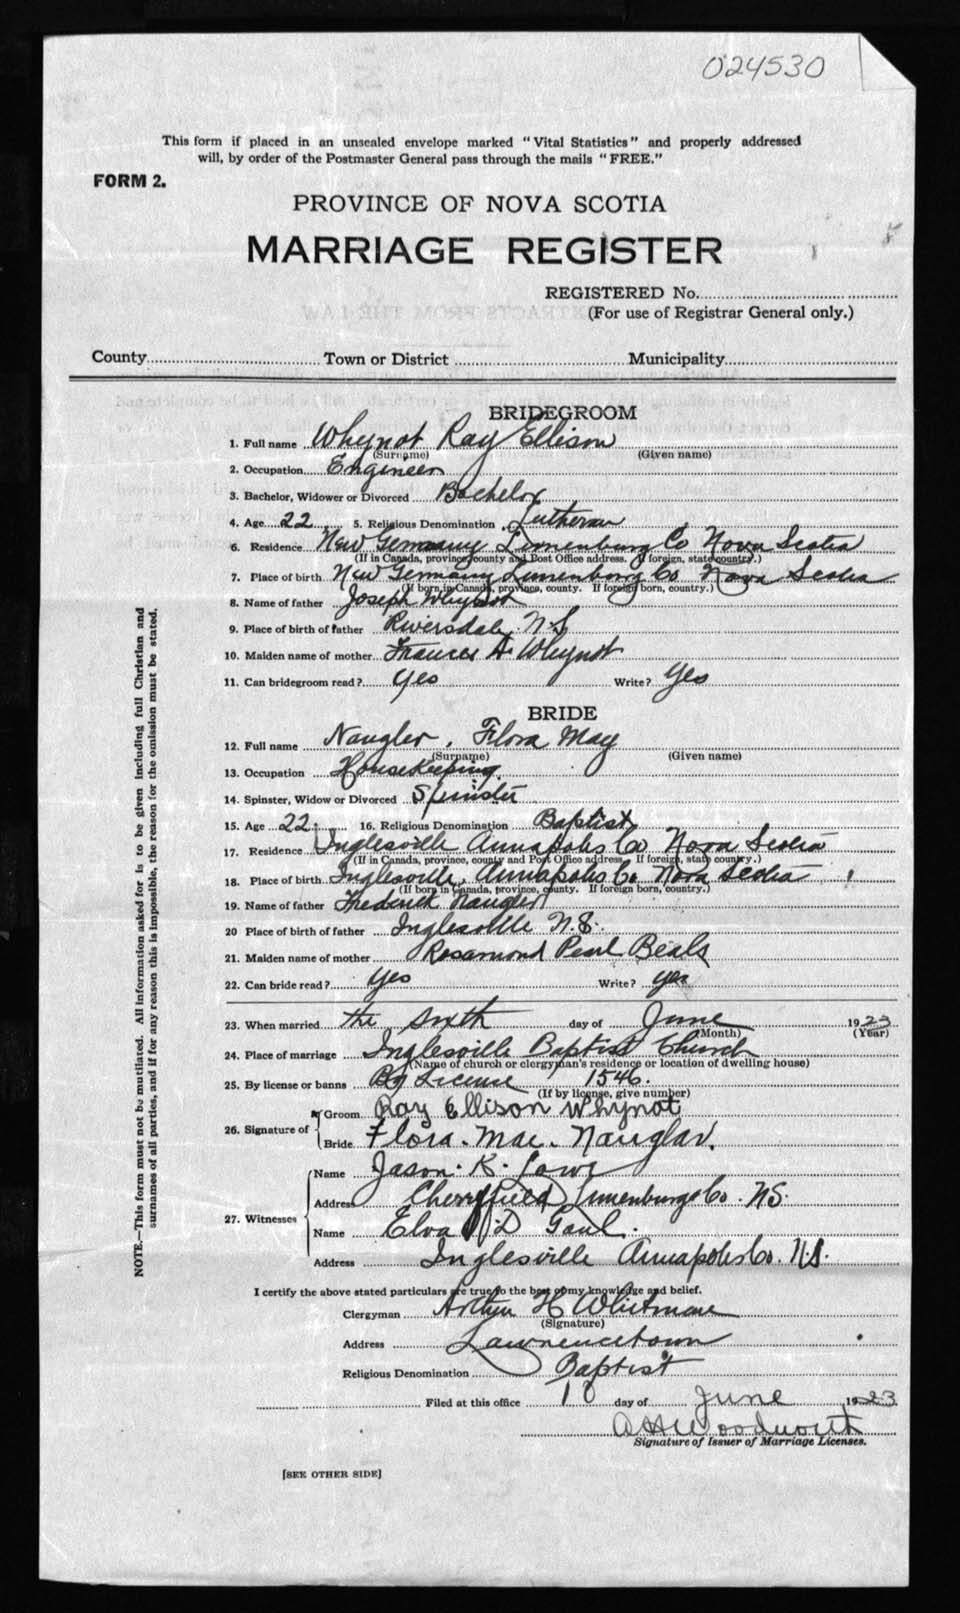 024530
This form if placed in an unsealed envelope marked "Vital Statistics" and properly addressed
will, by order of the Postmaster General pass through the mails "FREE."
FORM 2.
PROVINCE OF NOVA SCOTIA
MARRIAGE REGISTER
REGISTERED No.
(For use of Registrar General only.)
County Town or District Municipality
BRIDEGROOM
1. Full name Whynot Ray Ellison
(Surname) (Given name)
2. Occupation Engineer
3. Bachelor, Widower or Divorced Bachelor
4. Age 22 5. Religious Denomination Lutheran
6. Residence New Germany Lunenburg Co Nova Scotia
(If in Canada, province, county and Post Office address. If foreign, state country.)
7. Place of birth New Germany Lunenburg Co Nova Scotia
(If born in Canada, province, county. If foreign born, country.)
8. Name of father Joseph Whynot
9. Place of birth of father Riversdale N.S
10. Maiden name of mother Frances A. Whynot
11. Can bridegroom read? Yes Write? Yes
BRIDE
12. Full name Naugler, Flora May
(Surname) (Given name)
13. Occupation Housekeeping
14. Spinster, Widow or Divorced Spinster
15. Age 22 16. Religious Denomination Baptist
17. Residence Inglesville Annapolis Co Nova Scotia
(If in Canada, province, county and Post Office address. If foreign, state country.)
18. Place of birth Inglesville, Annapolis Co. Nova Scotia
(If born in Canada, province, county. If foreign born, country.)
19. Name of father Frederick Naugler
20 Place of birth of father Inglesville N.S.
21. Maiden name of mother Rosamond Pearl Beals
22. Can bride read? Yes Write? yes
23. When married the sixth day of June 1923
(Month) (Year)
24. Place of marriage Inglesville Baptist Church
(Name of church or clergyman's residence or location of dwelling house)
25. By license or banns By License 1546.
(If by license, give number)
26. Signature of Groom Ray Ellison Whynot
Bride Flora. Mae. Nauglar.
27. Witnesses Name Jason. R. Lowe
Address Cherryfield Lunenburg Co. N.S.
Name Elva D Gaul.
Address Inglesville Annapolis Co. N.S.
I certify the above stated particulars are true to the best of my knowledge and belief.
Clergyman Arthur H Whitman
(Signature)
Address Lawrencetown
Religious Denomination Baptist
Filed at this office 18 day of June 1923
Woodworth
Signature of Issuer of Marriage Licenses.
[SEE OTHER SIDE]
NOTE.—This form must not be mutilated. All information asked for is to be given including full Christian and
surnames of all parties, and if for any reason this is impossible, the reason for the omission must be stated.